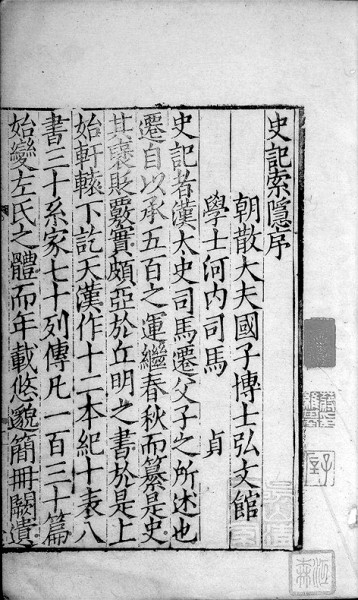 史記索隱序
朝散大夫國子博士弘文館
學士河內司馬 貞
史記者漢太史司馬遷父子之所述也
遷自以承五百之運繼春秋而纂是史
其襃貶覈實頗亞於丘明之書於是上
始軒轅下訖天漢作十二本紀十表八
書三十系家七十列傳凡一百三十篇
始變左氏之體而年載悠邈簡冊闕遺